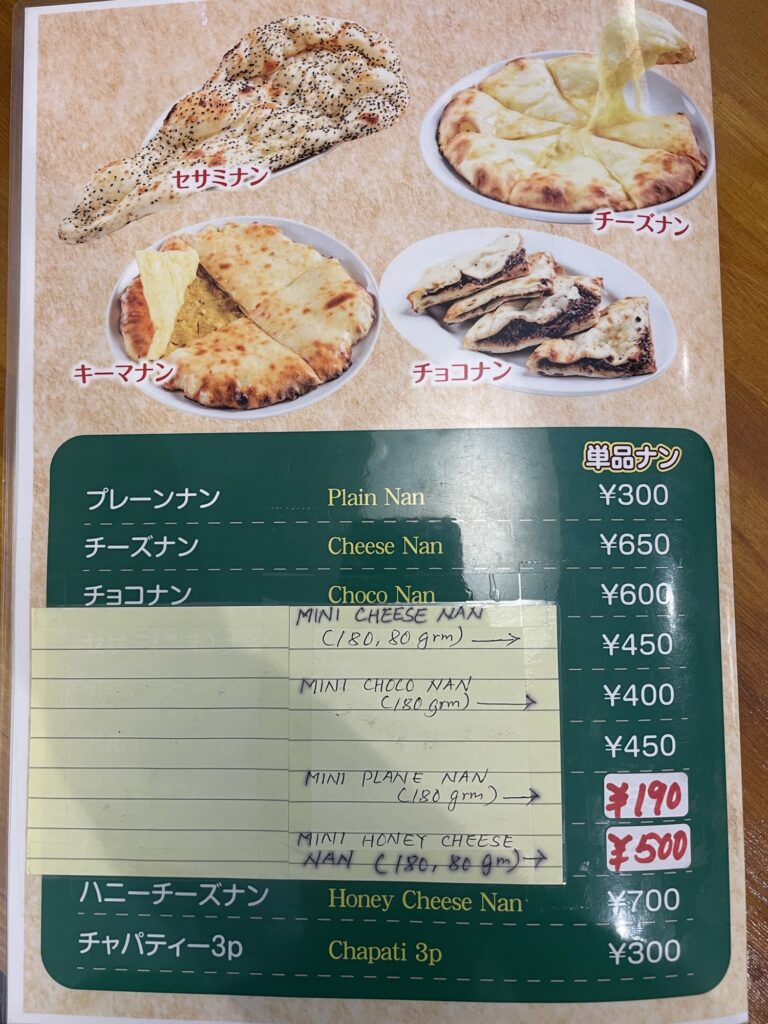 セサミナン
チーズナン
キーマナン
チョコナン
単品ナン
プレーンナン Plain Nan ¥300
チーズナン Cheese Nan ¥650
チョコナン Choco Nan ¥600
MINI CHEESE NAN
(180, 80 grm) → ¥450
MINI CHOCO NAN ¥400
(180 grm) →
¥450
MINI PLANE NAN
(180 grm) → ¥190
MINI HONEY CHEESE
NAN (180, 80 gm) → ¥500
ハニーチーズナン Honey Cheese Nan ¥700
チャパティー3p Chapati 3p ¥300